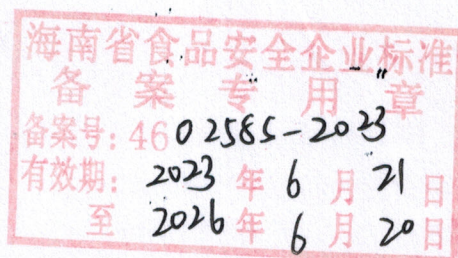 海南省食品安全企业标准
备案专用章
备案号：4602585-2023
有效期：2023年6月21日
至2026年6月20日